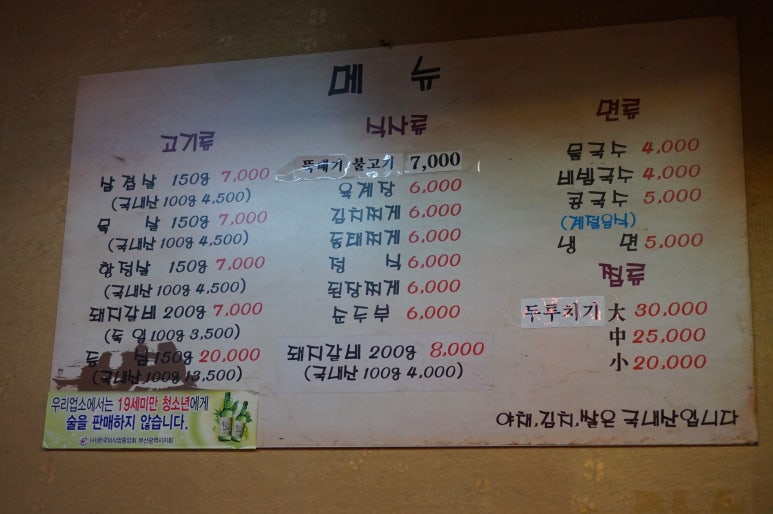 메 뉴
고기류
삼겹살 150g 7,000
(국내산 100g 4,500)
목 살 150g 7,000
(국내산 100g 4,500)
항정살 150g 7,000
(국내산 100g 4,500)
돼지갈비 200g 7,000
(독일 100g 3,500)
등 심 150g 20,000
(국내산 100g 13,500)
식사류
뚝배기 불고기 7,000
육계장 6,000
김치찌게 6,000
동태찌게 6,000
정 식 6,000
된장찌게 6,000
순두부 6,000
돼지갈비 200g 8,000
(국내산 100g 4,000)
면류
물국수 4,000
비빔국수 4,000
콩국수 5,000
냉 면 5,000
찜류
두루치기 大 30,000
中 25,000
小 20,000
우리업소에서는 19세미만 청소년에게
술을 판매하지 않습니다.
(사)한국외식업중앙회 부산광역시지회